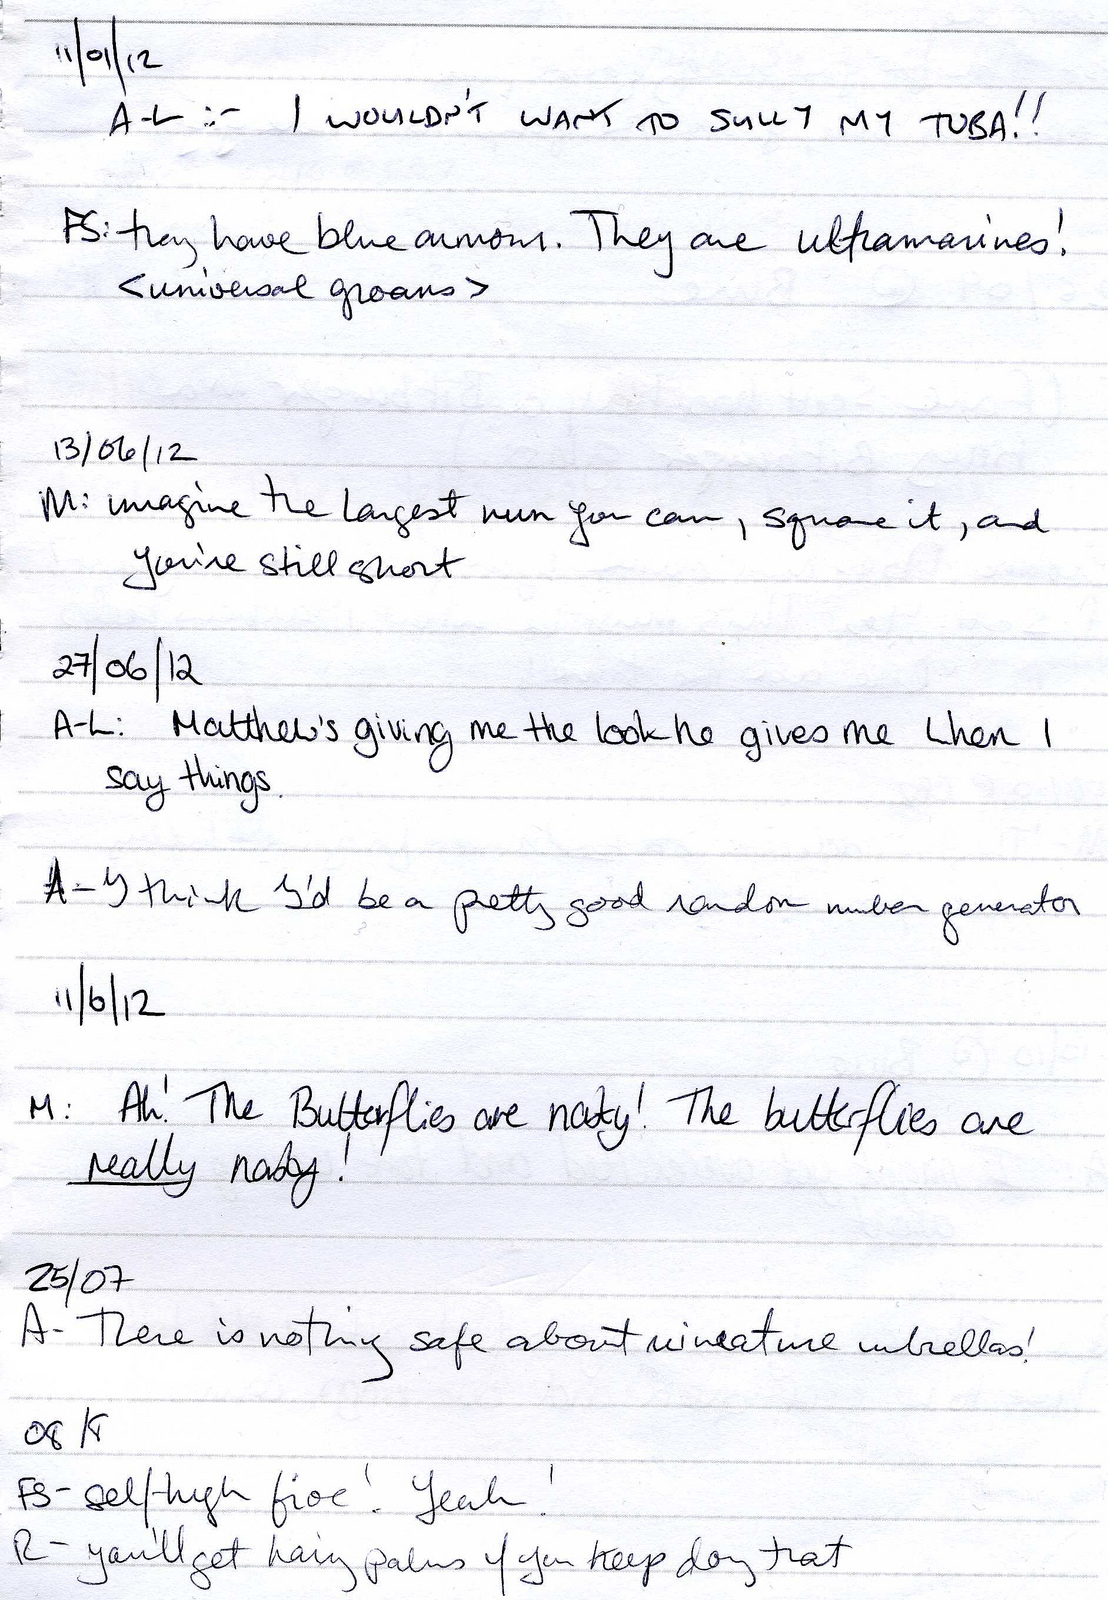 11/01/12
A-L :- I WOULDN'T WANT TO SULLY MY TUBA!!
FS: they have blue armour. They are ultramarines!
<universal groans>
13/06/12
M: imagine the largest nun you can, square it, and
you're still short
27/06/12
A-L: Matthew's giving me the look he gives me when I
say things.
A- I think I'd be a pretty good random number generator
11/6/12
M: Ah! The Butterflies are nasty! The butterflies are
really nasty!
25/07
A- There is nothing safe about mineature umbrellas!
08/8
FS- self-high five! Yeah!
R- you'll get hairy palms if you keep doing that